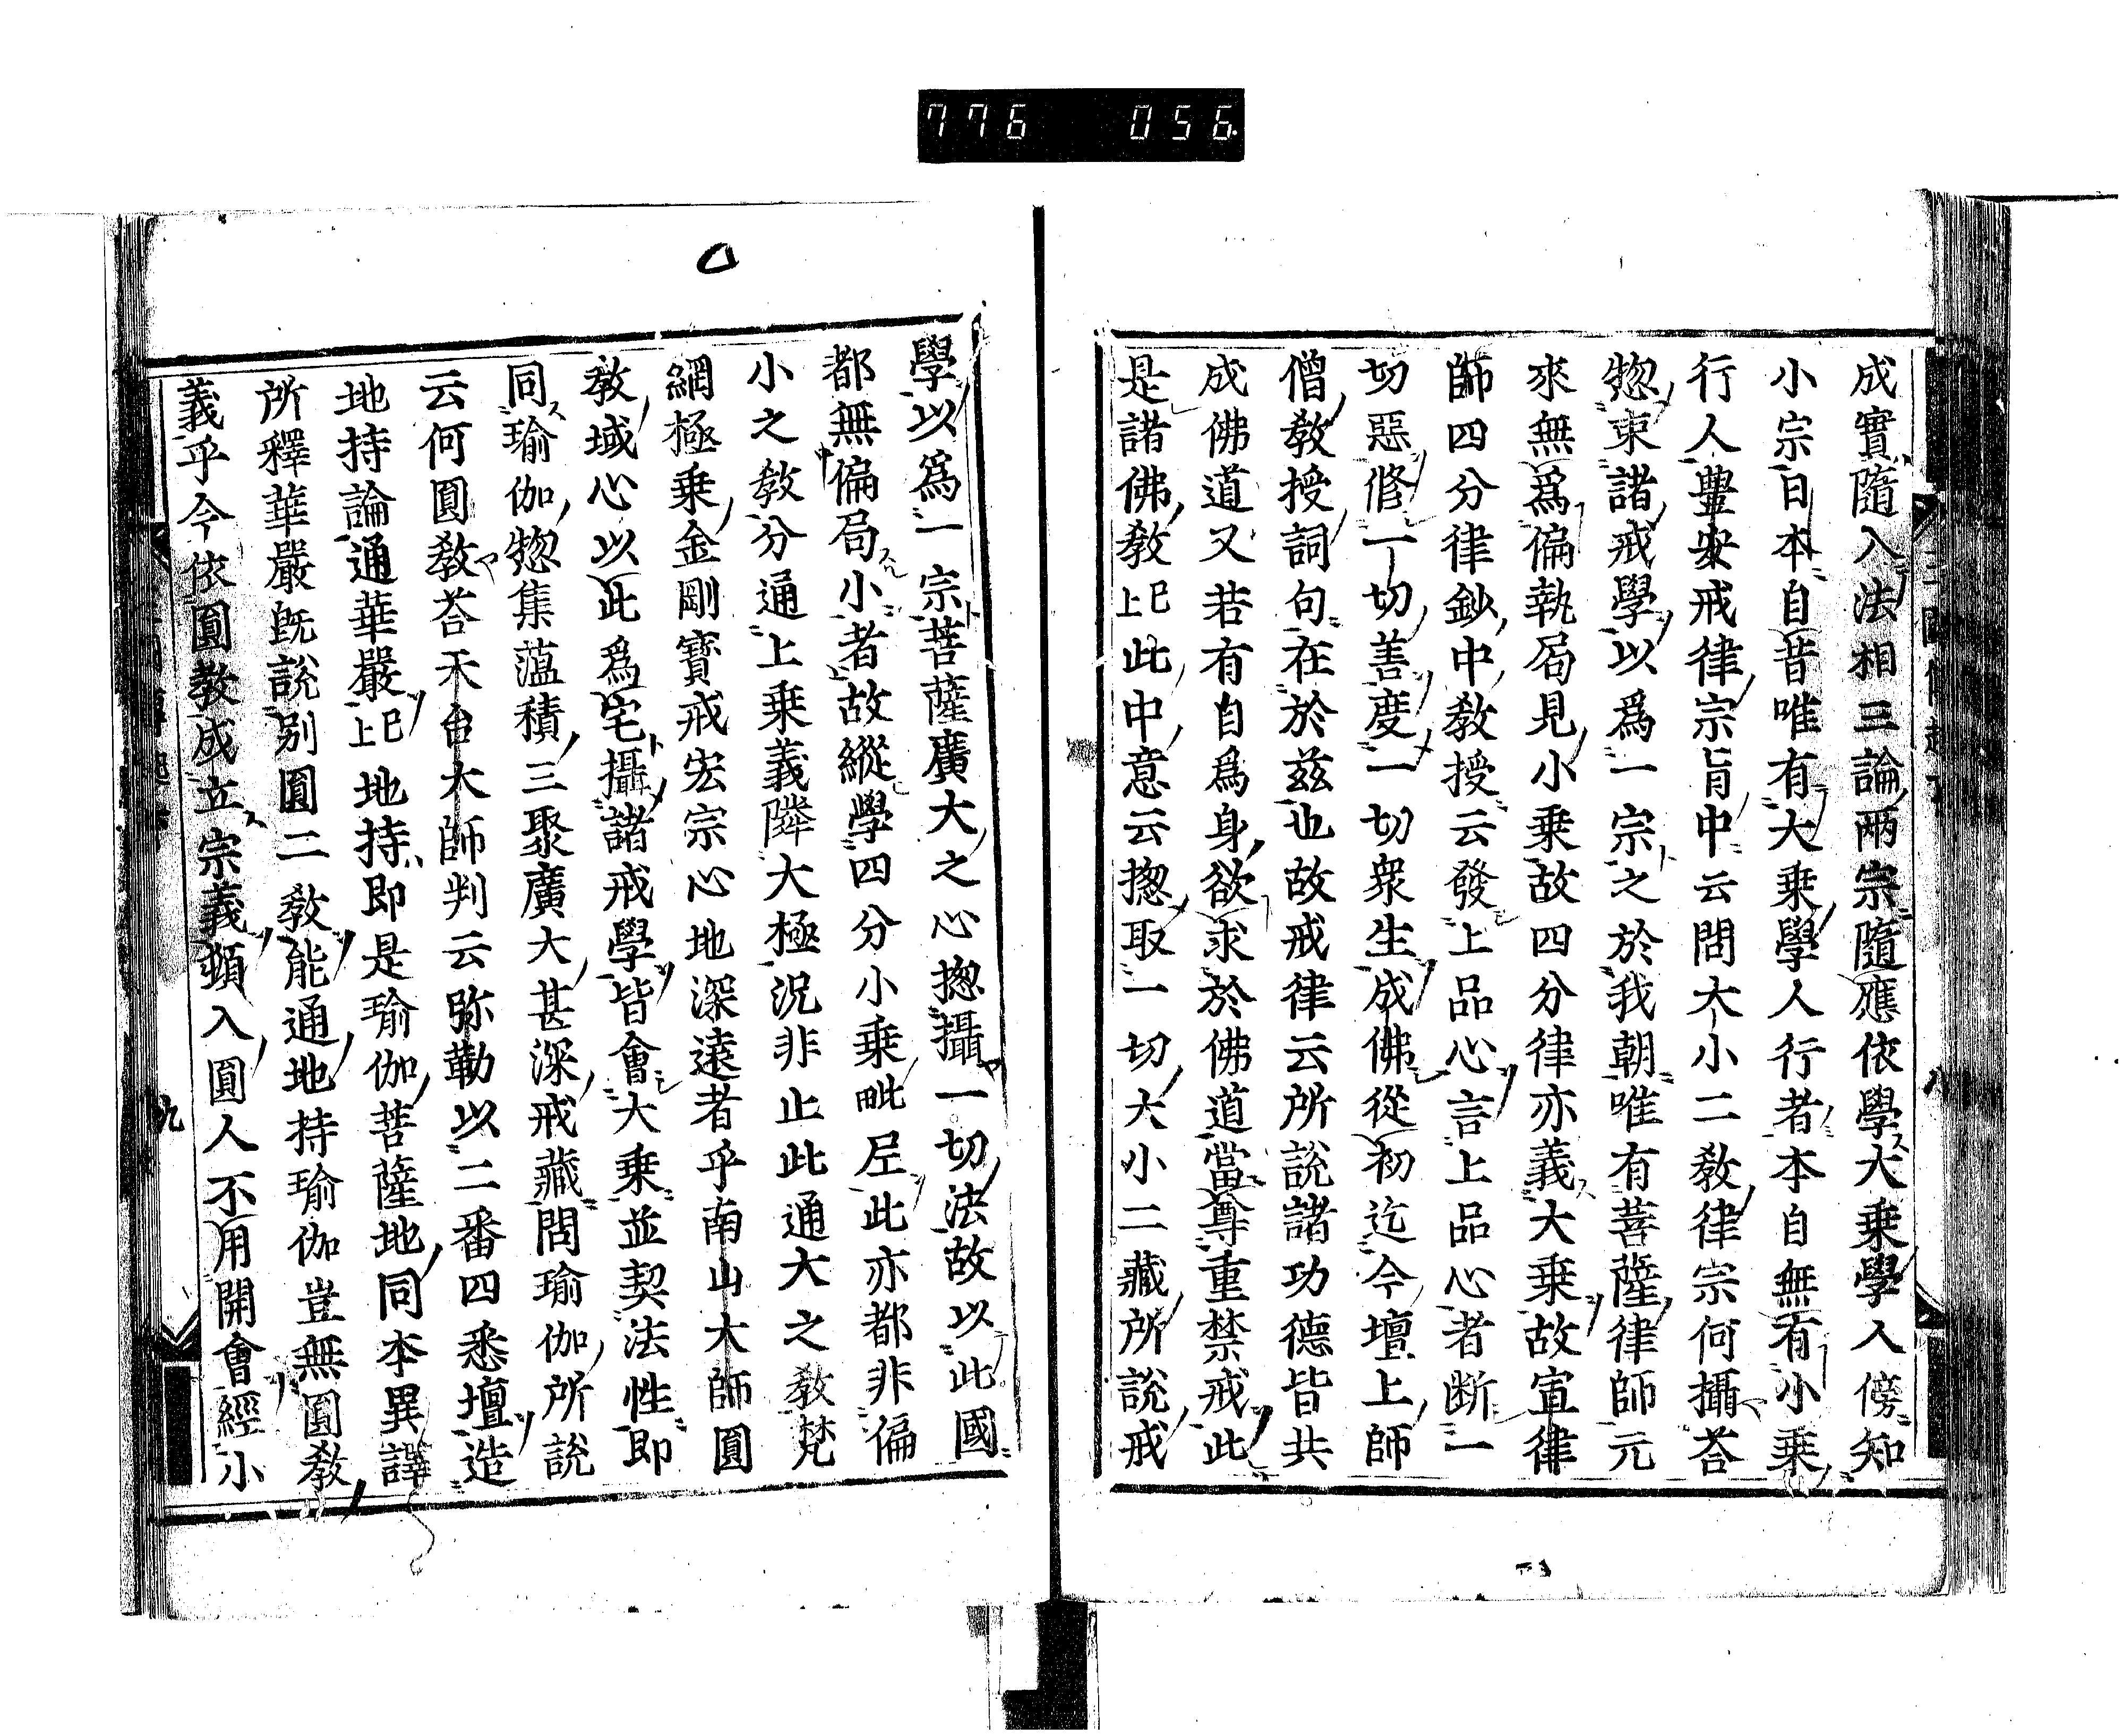 776 056
成實隨入法相三論兩宗隨應依學大乘學人傍知
小宗日本自昔唯有大乘學人行者本自無有小乘
行人豐安戒律宗旨中云問大小二教律宗何攝荅
惣束諸戒學以爲一宗之於我朝唯有菩薩律師元
來無爲偏執局見小乘故四分律亦義大乘故宣律
師四分律鈔中教授云發上品心言上品心者断一
切惡修一切善度一切衆生成佛從初迄今壇上師
僧教授詞句在於茲也故戒律云所說諸功德皆共
成佛道又若有自爲身欲求於佛道當尊重禁戒此
是諸佛教已上此中意云揔取一切大小二藏所說戒
學以爲一宗菩薩廣大之心揔攝一切法故以此國
都無偏局小者故縱學四分小乘毗尼此亦都非偏
小之教分通上乘義隣大極況非止此通大之教梵
網極乘金剛寶戒宏宗心地深遠者乎南山大師圓
教域心以此爲宅攝諸戒學皆會大乘並契法性即
同瑜伽惣集薀積三聚廣大甚深戒藏問瑜伽所說
云何圓教荅天台大師判云弥勒以二番四悉壇造
地持論通華嚴已上地持即是瑜伽菩薩地同本異譯
所釋華嚴既說別圓二教能通地持瑜伽豈無圓教
義乎今依圓教成立宗義頓入圓人不用開會經小
八
九